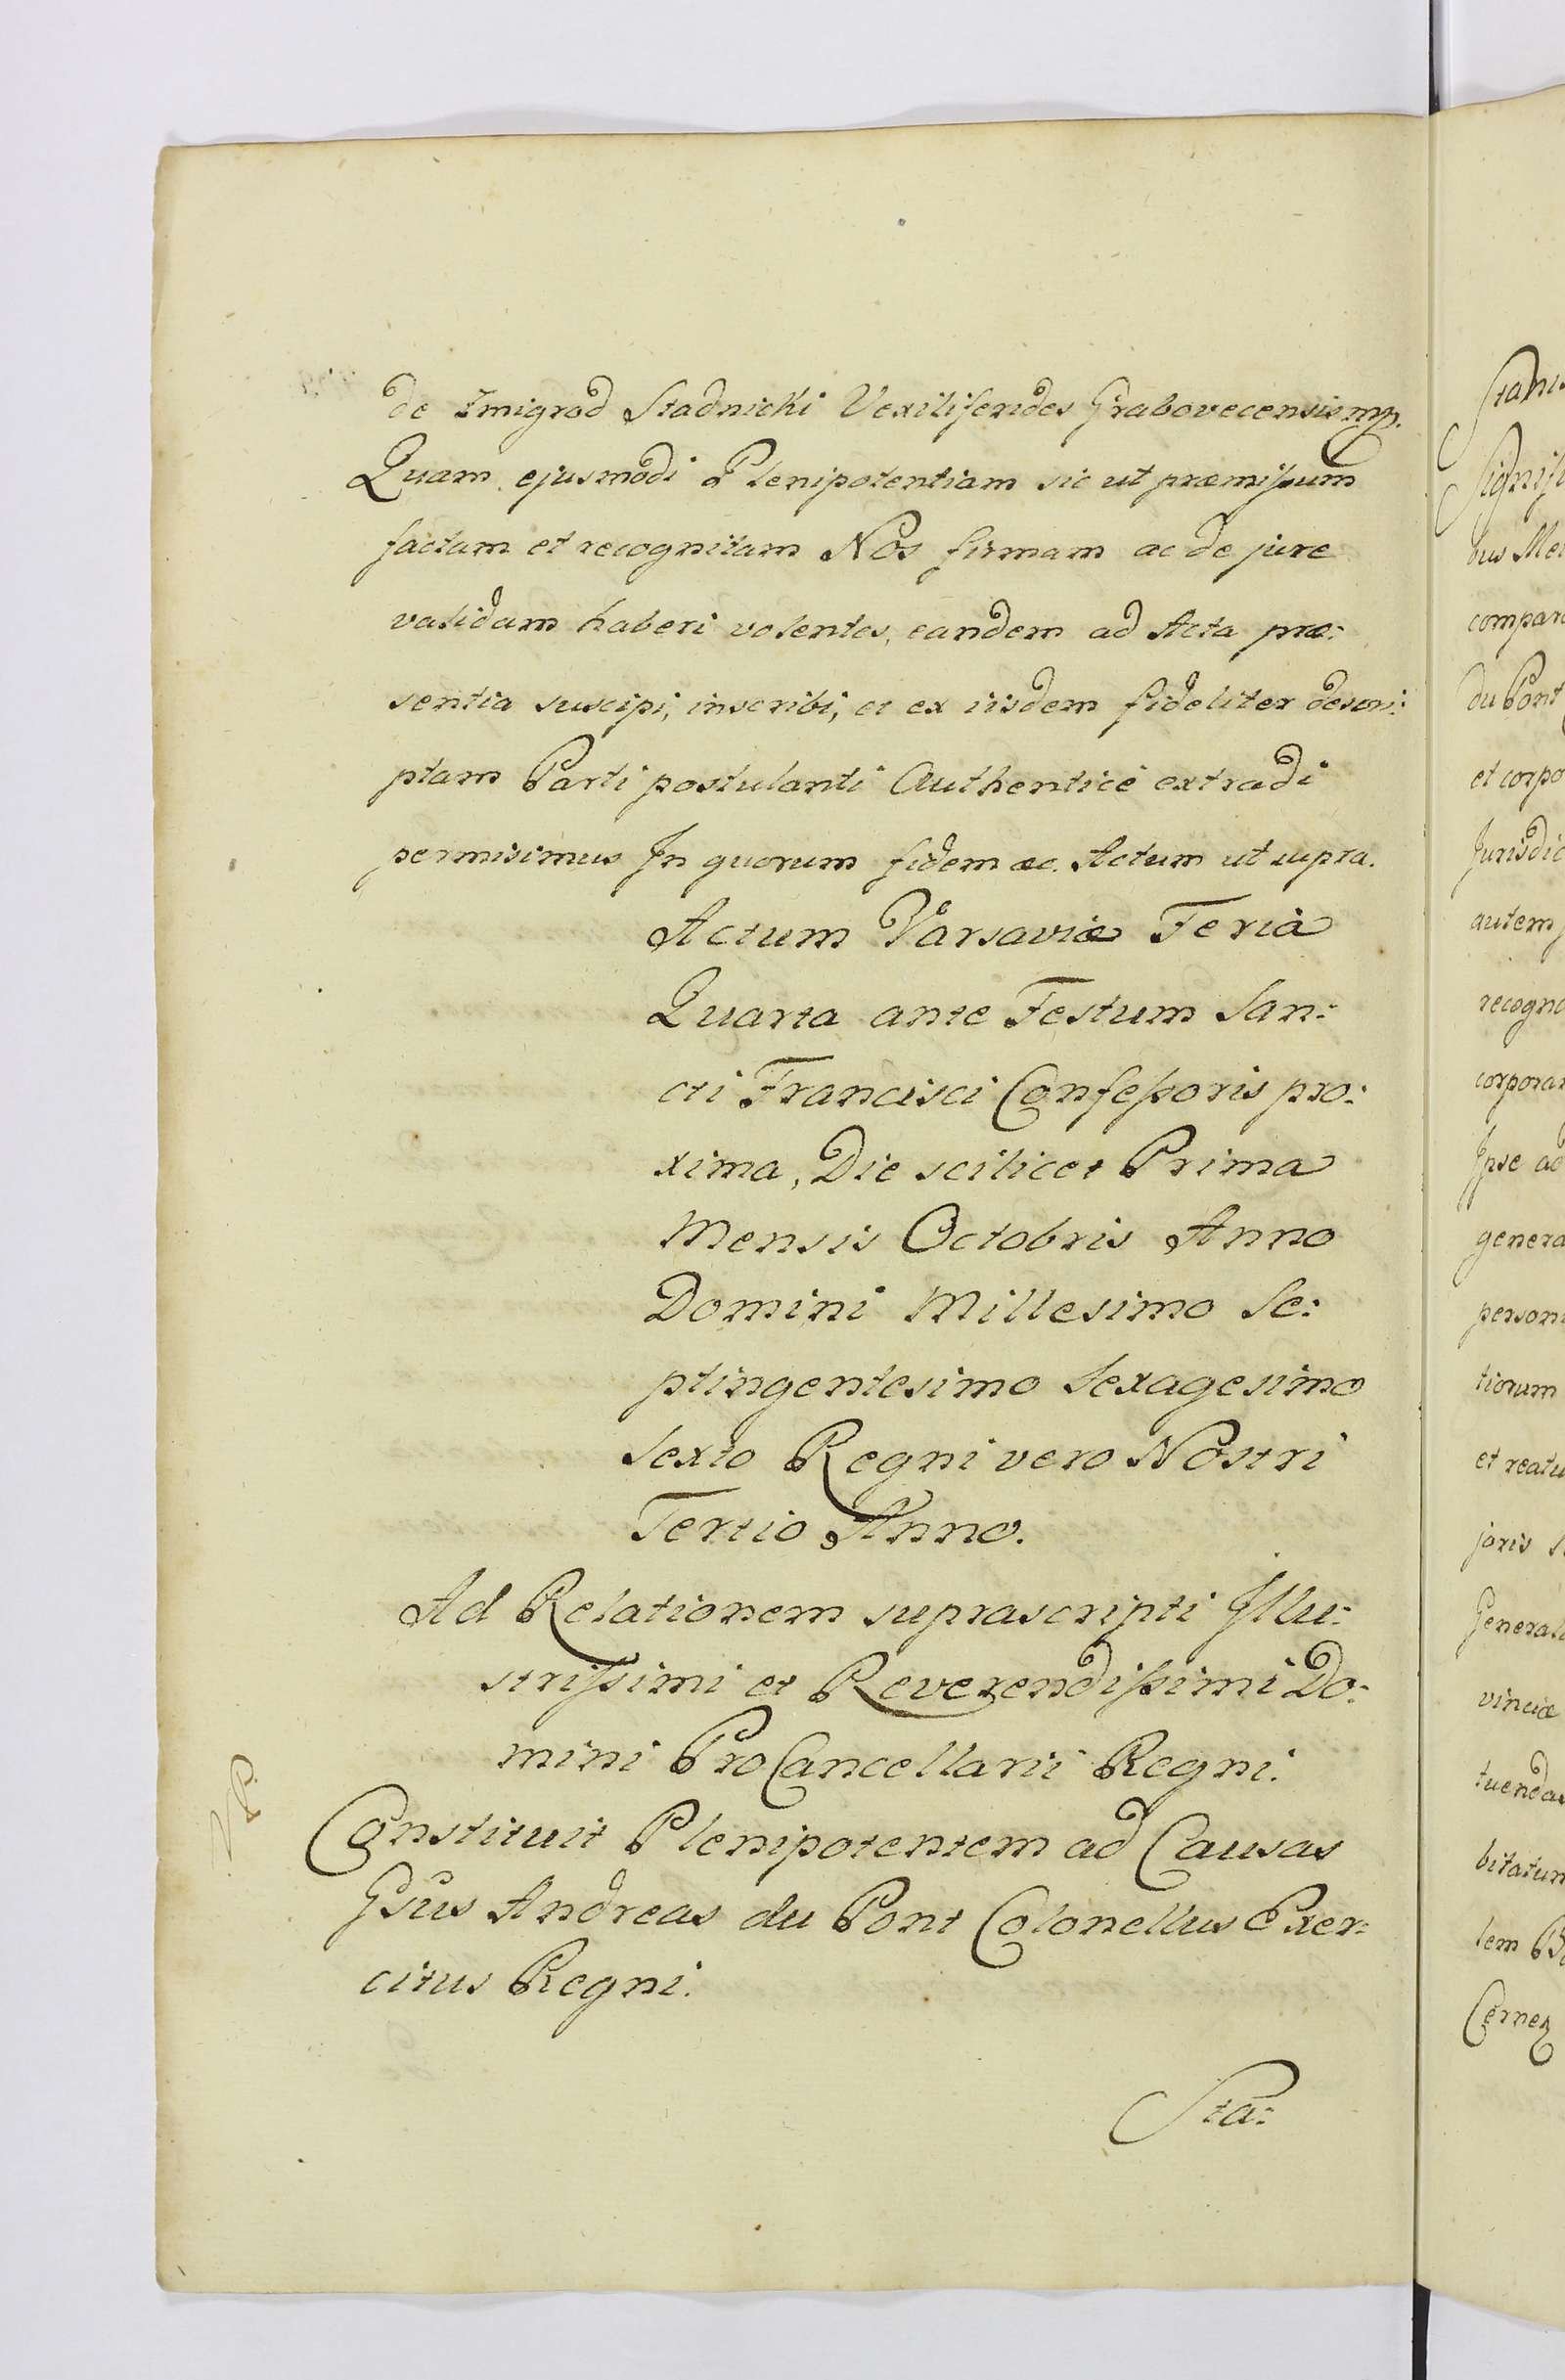 de Zmigrod Stadnicki Vexiliferides Grabovecensis mp.
Quam ejusmodi Plenipotentiam sic ut præmissum
factam et recognitam Nos firmam ac de jure
validam haberi volentes, eandem ad Acta præ:
sentia suscipi, inscribi, et ex iisdem fideliter descri:
ptam Parti postulanti Authenticè extradi
permisimus In quorum fidem &c. Actum ut supra.
Actum Varsaviæ Feriâ
Quarta ante Festum San:
cti Francisci Confessoris pro:
xima, Die scilicet Prima
Mensis Octobris Anno
Domini Millesimo Se:
ptingentesimo Sexagesimo
Sexto Regni vero Nostri
Tertio Anno.
Ad Relationem suprascripti Illu:
strissimi et Reverendissimi Do:
mini ProCancellarii Regni.
Constituit Plenipotentem ad Causas
Gsus Andreas du Pont Colonellus Exer:
citus Regni.
Sta:
Stani
Signifi
bus Me
compar
du Pont
et corpo
Jurisdic
autem
recogno
corpora
Ipse ad
genera
person
tiorum
et reatu
joris
General
vinciæ
tuenda
bitatum
lem
Cernez